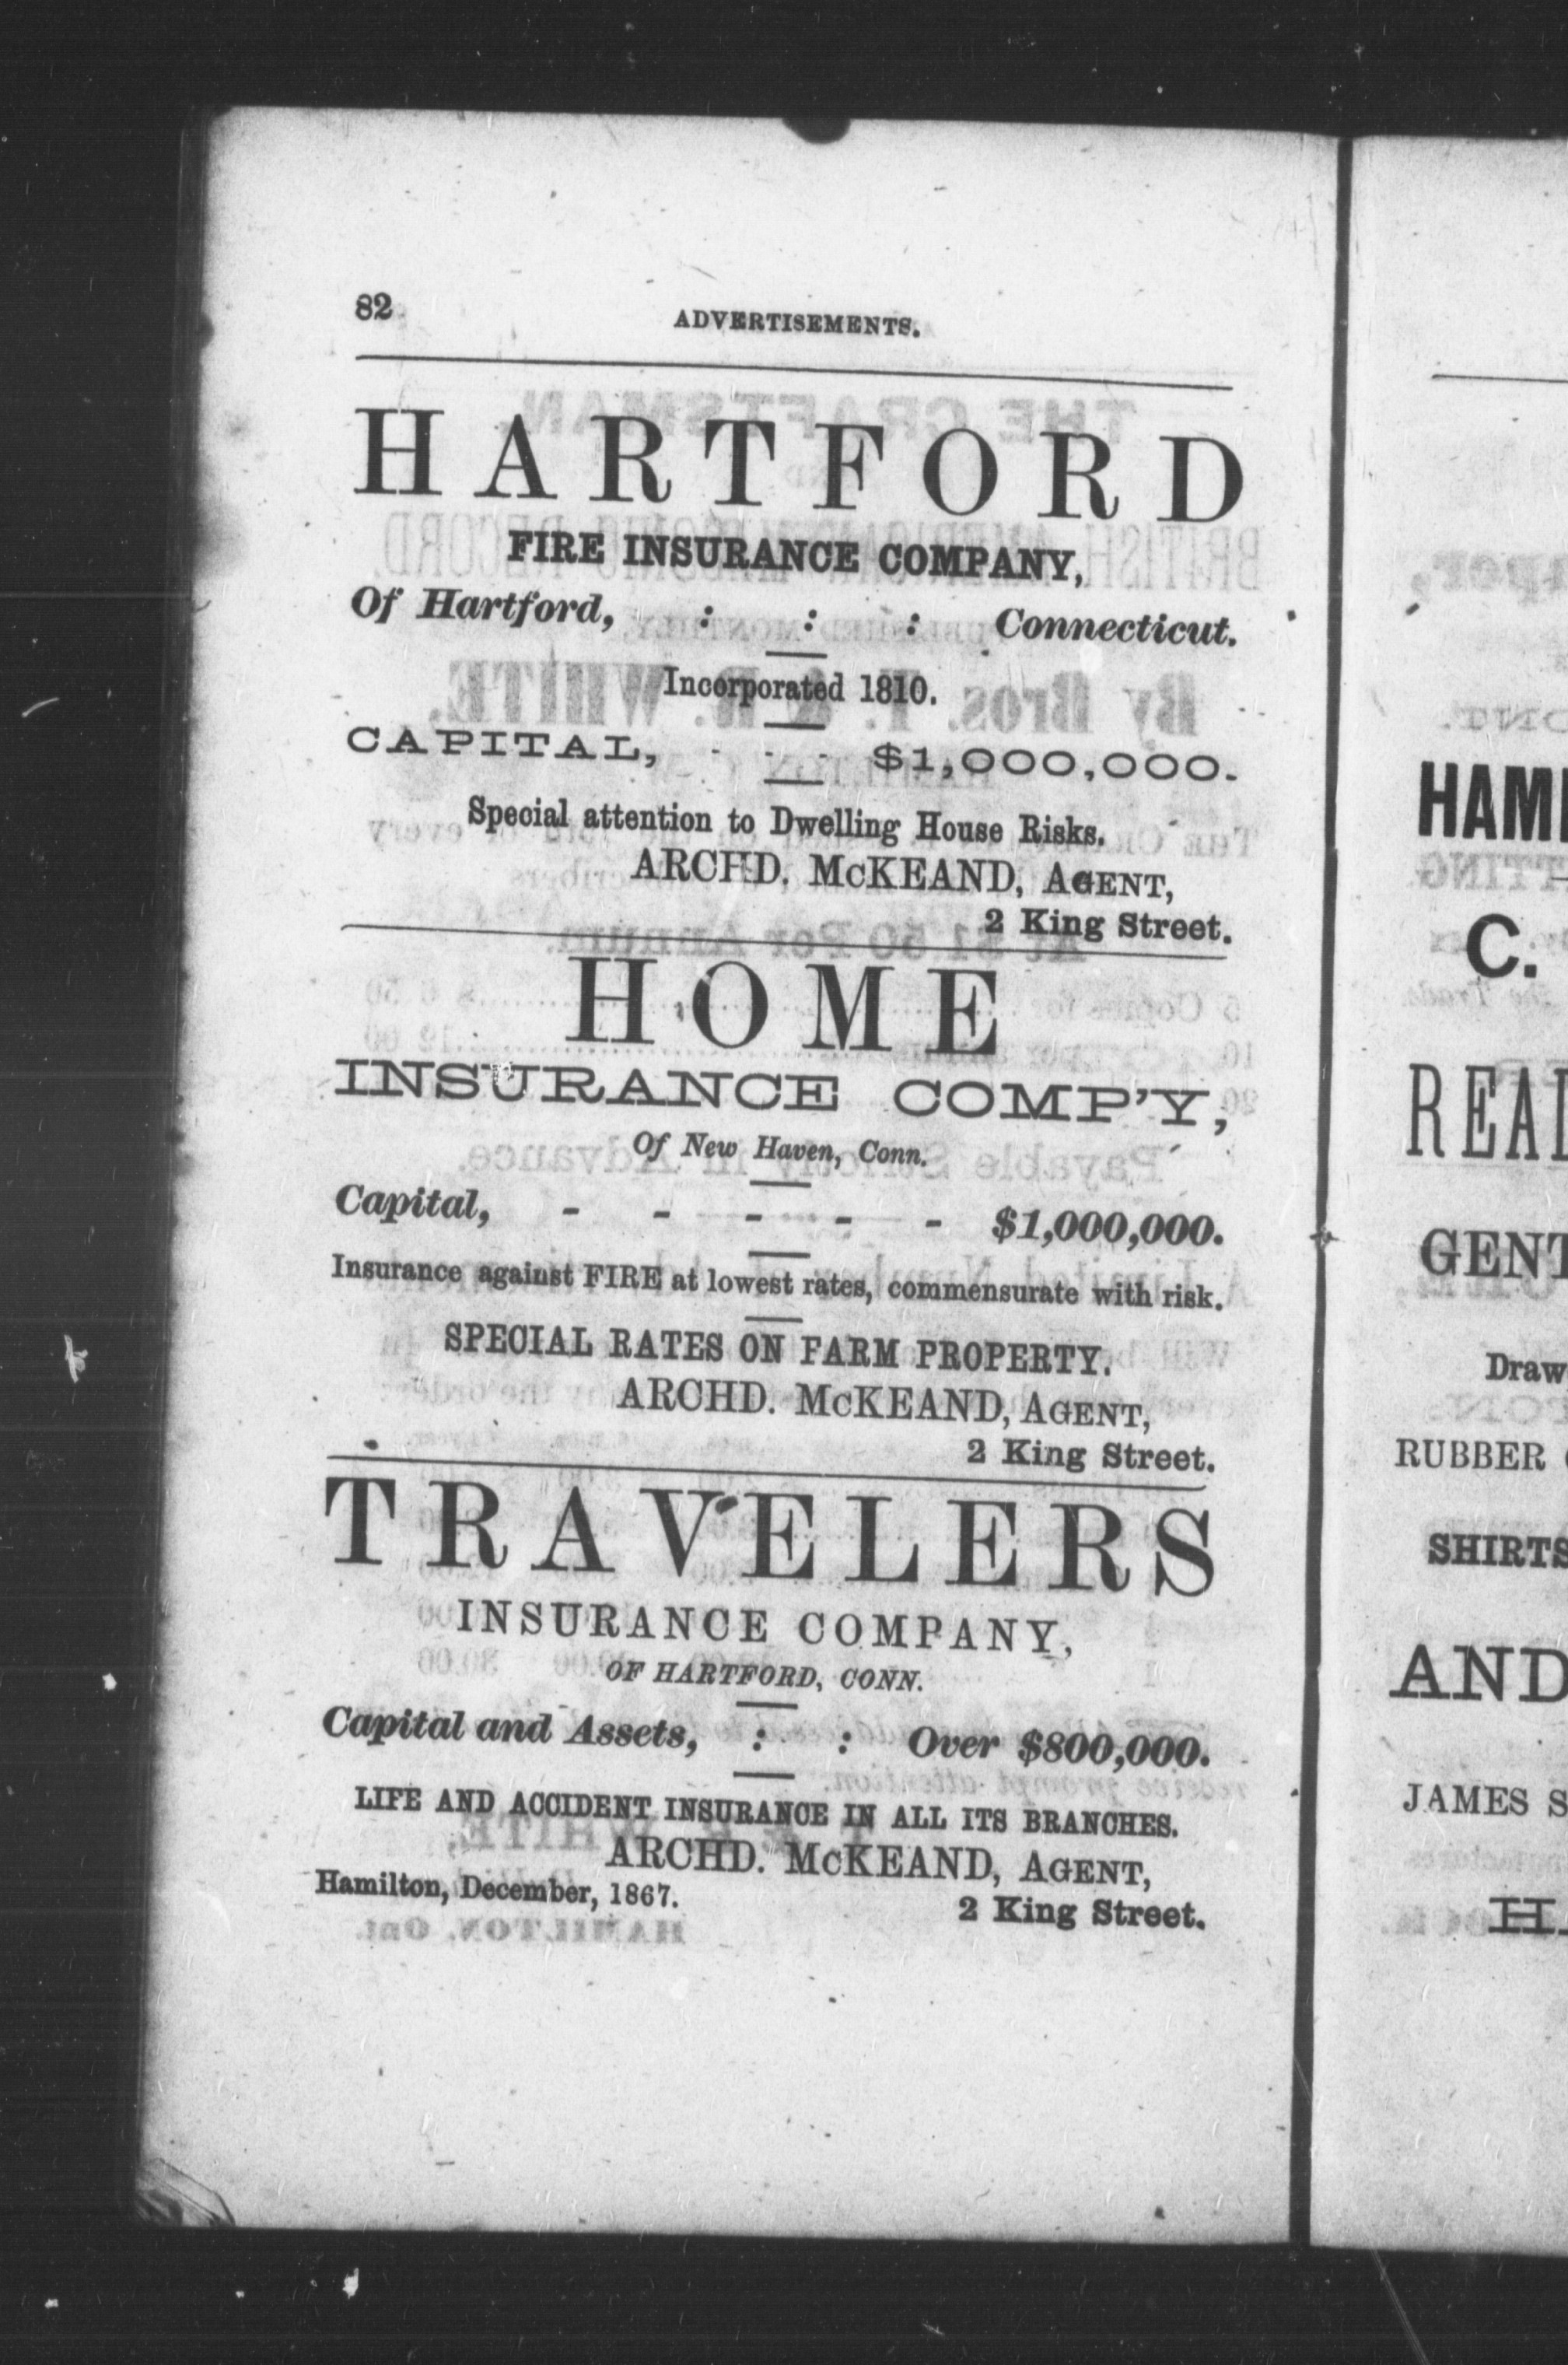 82
ADVERTISEMENTS.
HARTFORD
FIRE INSURANCE COMPANY,
Of Hartford, : : : Connecticut.
Incorporated 1810.
CAPITAL, - - - $1,000,000.
Special attention to Dwelling House Risks.
ARCHD. McKEAND, AGENT,
2 King Street.
HOME
INSURANCE COMP'Y,
Of New Haven, Conn.
Capital, - - - - - $1,000,000.
Insurance against FIRE at lowest rates, commensurate with risk.
SPECIAL RATES ON FARM PROPERTY.
ARCHD. McKEAND, AGENT,
2 King Street.
TRAVELERS
INSURANCE COMPANY,
OF HARTFORD, CONN.
Capital and Assets, : : Over $800,000.
LIFE AND ACCIDENT INSURANCE IN ALL ITS BRANCHES.
ARCHD. McKEAND, AGENT,
Hamilton, December, 1867.
2 King Street.
HAMI
C.
REAL
GENT
Draw
RUBBER
SHIRTS
AND
JAMES S
H